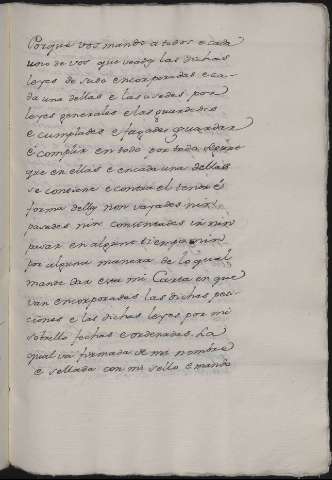 Porque vos mando a todos e cada
uno de vos que veades las dichas
leyes de suso encorporadas e ca-
da una dellas e las usedes por
leyes generales e las guardedes
e cumplades e façades guardar
é complir en todo por todo segunt
que en ellas é en cada una dellas
se contiene e contra el tenor é
forma dellas non vayades nin
pasades nin consintades ir nin
pasar en algunt tiempo nin
por alguna manera de lo qual
mande dar esta mi Carta en que
van encorporadas las dichas peti-
ciones e las dichas leyes por mi
sobrello fechas e ordenadas. La
qual va firmada de mi nombre
e sellada con mi sello é mando